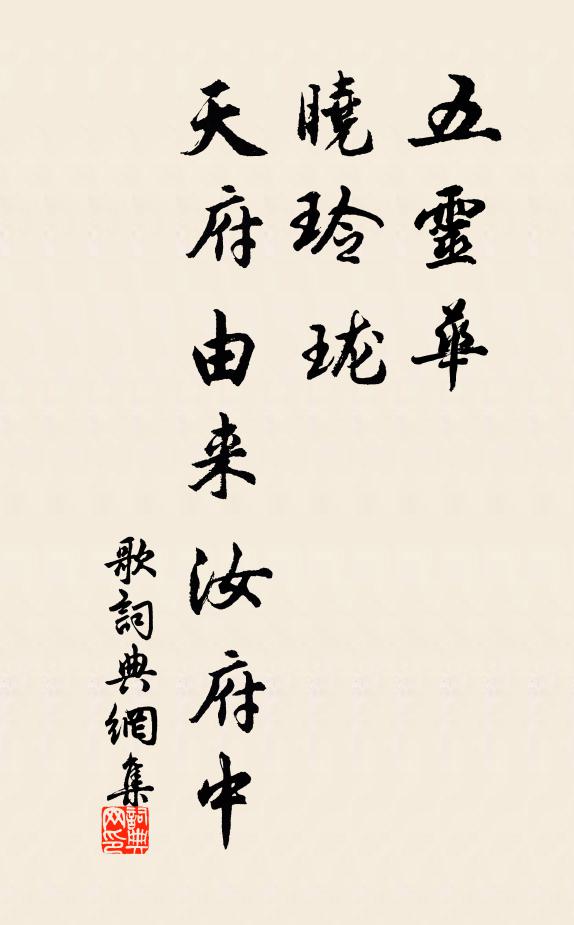 五靈華
曉玲珑
天府由来汝府中
歌詞典網集
詞典网印